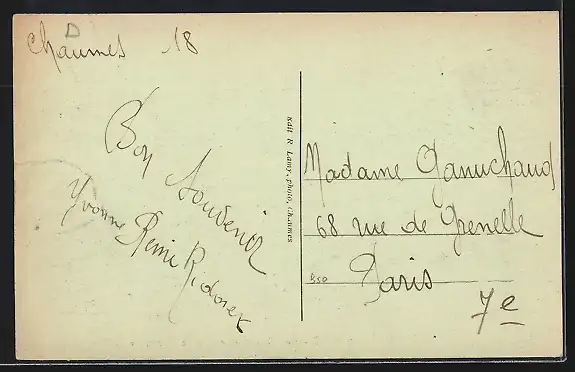 Chaumes 18
D
Bon Souvenir
Yvonne Remi Ridoret
Edit R Lamy, photo, Chaumes
Madame Ganuchaud
68 rue de Grenelle
Paris
7e